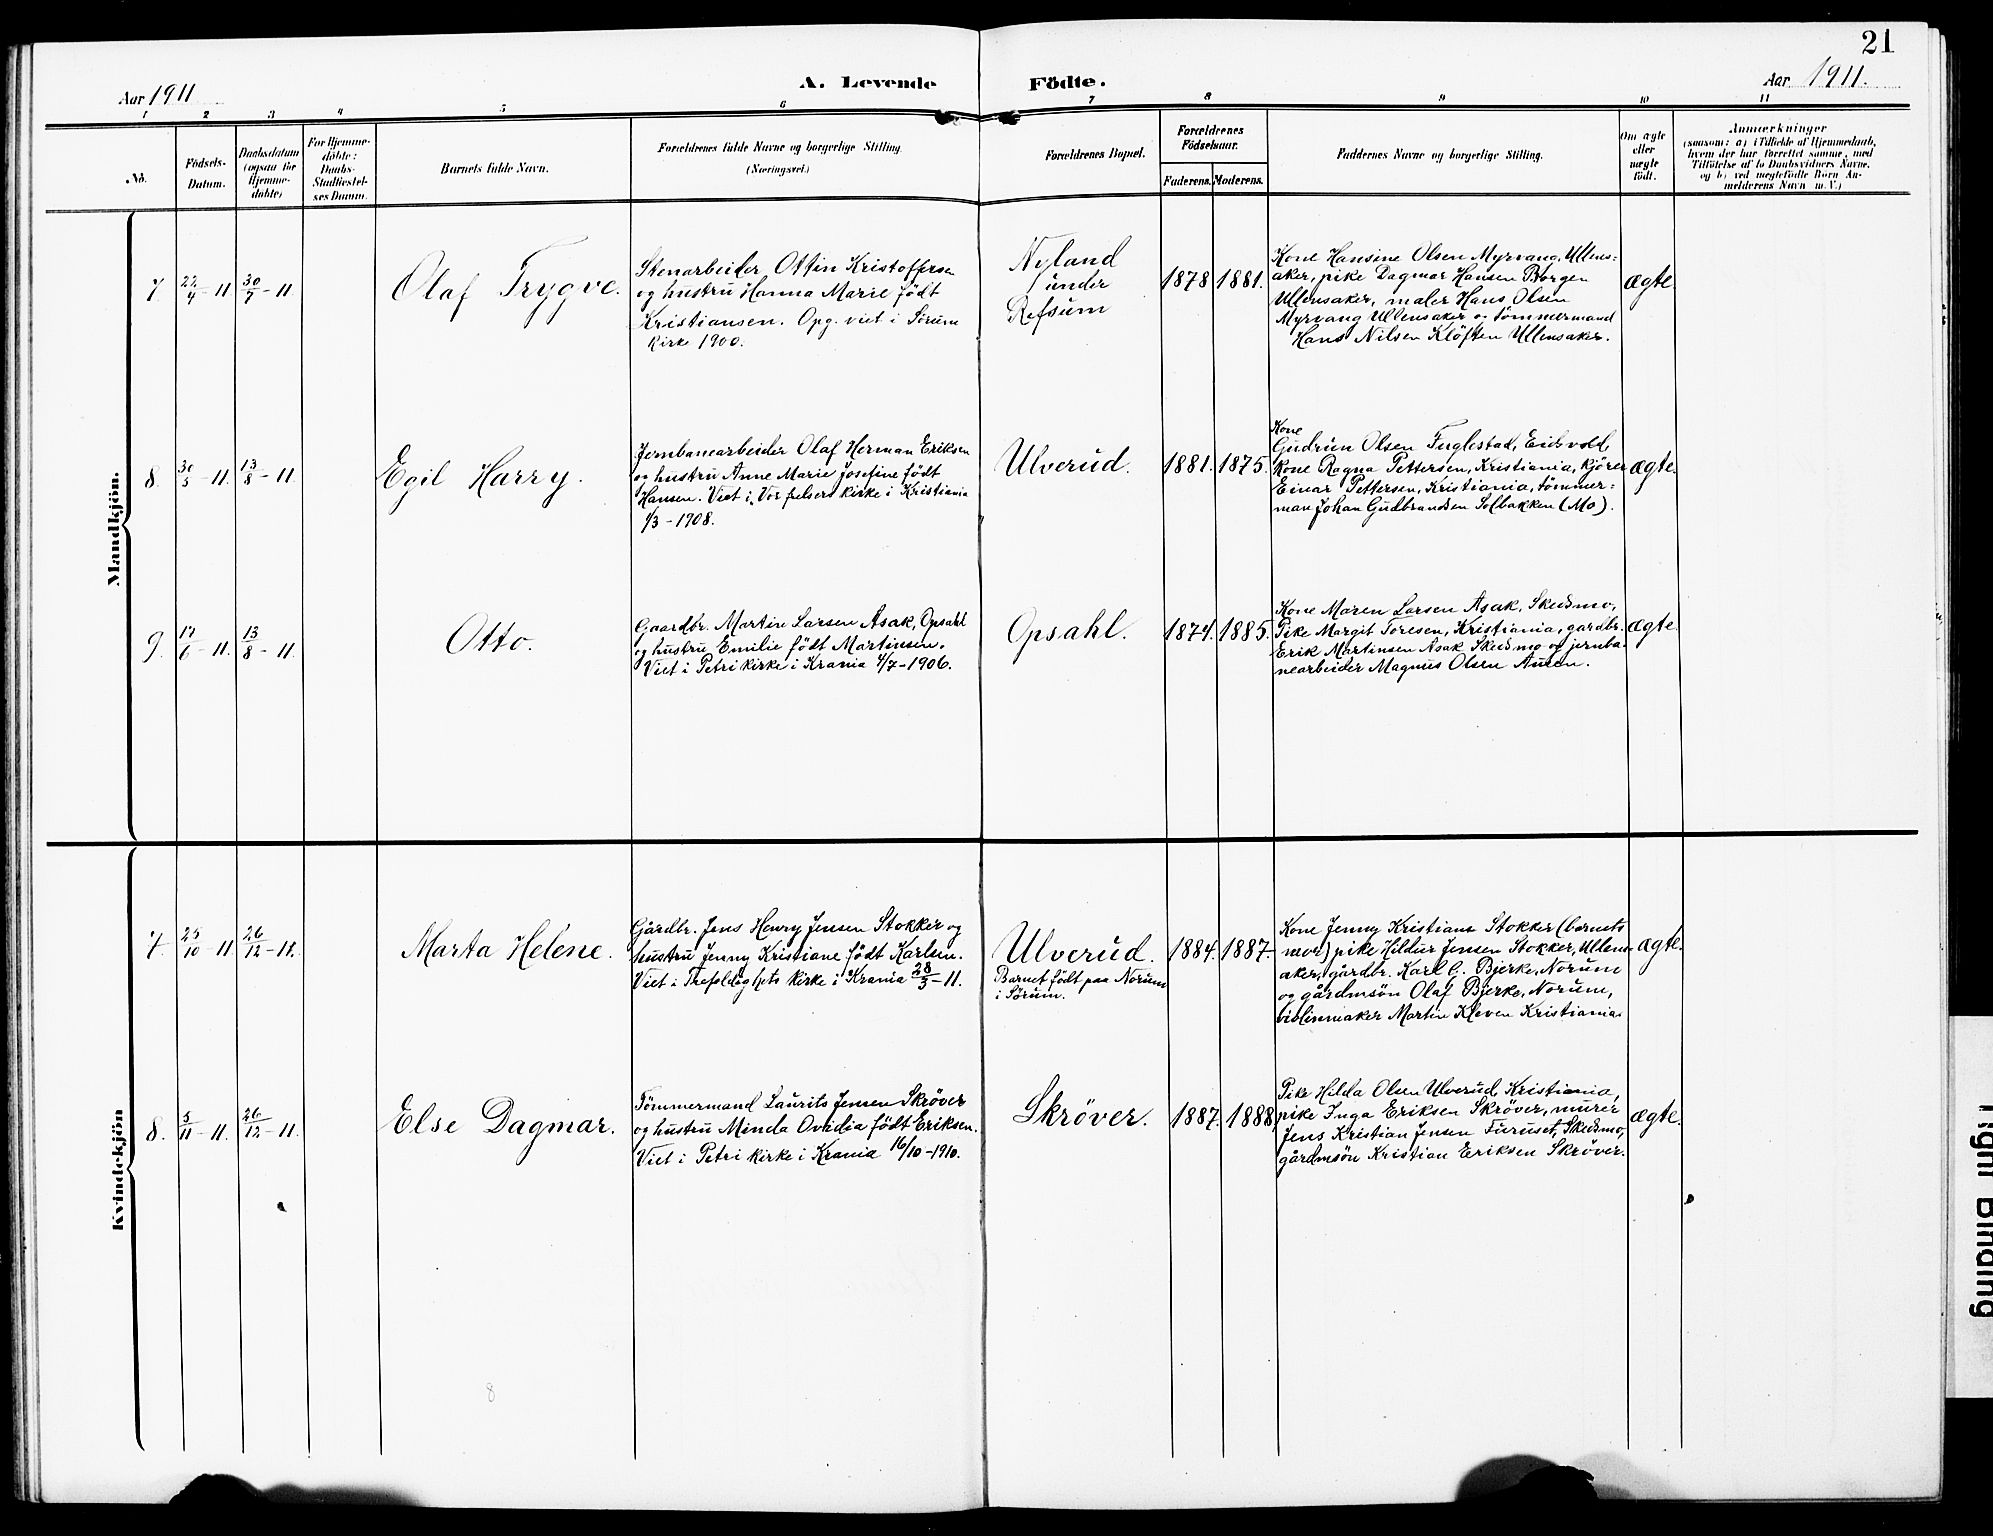 21
Aar 1911
A. Levende Födte.
Aar 1911.
1 2 3 4 5 6 7 8 9 10 11
No.
Födsels-
Datum.
Daabsdatum
(ogsaa for
Hjemme-
döbte)
For Hjemme-
döbte:
Daabs-
Stadfæstel-
ses Datum.
Barnets fulde Navn.
Forældrenes fulde Navne og borgerlige Stilling.
(Næringsvei.)
Forældrenes Bopæl.
Forældrenes
Födselsaar.
Faderens. Moderens.
Faddernes Navne og borgerlige Stilling.
Om ægte
eller
uægte
födt.
Anmærkninger
(saasom: a) i Tilfælde af Hjemmedaab,
hvem der har forrettet samme, med
Tilföielse af to Daabsvidners Navne,
og b) ved uægtefödte Börn An-
melderens Navn m. V.)
Mandkjön.
7 22/4 - 11 30/7 - 11
Olaf Trygve.
Stenarbeider Ottin Kristoffersen
og hustru Hanna Marie født
Kristiansen. Opg. viet i Sørum
Kirke 1900.
Nyland
under
Refsum
1878 1881.
Kone Hansine Olsen Myrvang, Ullens-
aker, pike Dagmar Hansen Borgen
Ullensaker, maler Hans Olsen
Myrvang Ullensaker og tömmermand
Hans Nilsen Klöften Ullensaker.
ægte.
8. 30/5 - 11. 13/8 - 11.
Egil Harry.
Jernbanearbeider Olaf Herman Eriksen
og hustru Anne Marie Josefine født
Hansen. Viet i Vor frelsers kirke i Kristiania
1/3 - 1908.
Ulverud.
1881. 1875.
Kone
Gudrun Olsen Fuglestad, Eidsvold,
Kone Ragna Pettersen, Kristiania, kjörer
Einar Pettersen, Kristiania, tömmer:
man Johan Gudbrandsen Solbakken (Mo).
ægte.
9. 17/6 - 11. 13/8 - 11
Otto.
Gaardbr. Martin Larsen Asak, Opsahl
og hustru Emilie født Martinsen.
Viet i Petri kirke i Krania 4/7 - 1906.
Opsahl.
1874. 1885.
Kone Maren Larsen Asak, Skedsmo,
Pike Margit Toresen, Kristiania, gardbr.
Erik Martinsen Asak Skedsmo og jernba-
nearbeider Magnus Olsen Amen.
ægte.
Kvindekjön
7. 25/10 - 11 26/12 - 11.
Marta Helene.
Gårdbr. Jens Henry Jensen Stokker og
hustru Jenny Kristiane født Karlsen.
Viet i Trefoldighets kirke i Krania 28/3 - 11.
Ulverud.
Barnet født paa Norum
i Sörum.
1884. 1887.
Kone Jenny Kristiane Stokker (barnets
mor) pike Hildur Jensen Stokker, Ullens-
aker, gårdbr. Karl G. Bjerke, Norum
og gårdmsön Olaf Bjerke, Norum,
violinmaker Martin Kleven Kristiania.
ægte.
8. 5/11 - 11. 26/12 - 11.
Else Dagmar.
Tömmermand Laurits Jensen Skröver
og hustru Minda Ovidia født Eriksen.
Viet i Petri kirke i Krania 16/10 - 1910.
Skröver.
1887. 1888.
Pike Hilda Olsen Ulverud Kristiania,
pike Inga Eriksen Skröver, murer
Jens Kristian Jensen Furuset, Skedsmo,
gårdmsön Kristian Eriksen Skröver.
ægte.
8
Tight Binding